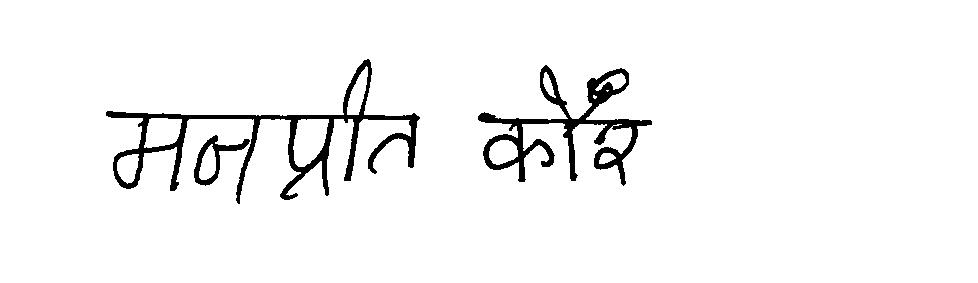 मनप्रीत कौर